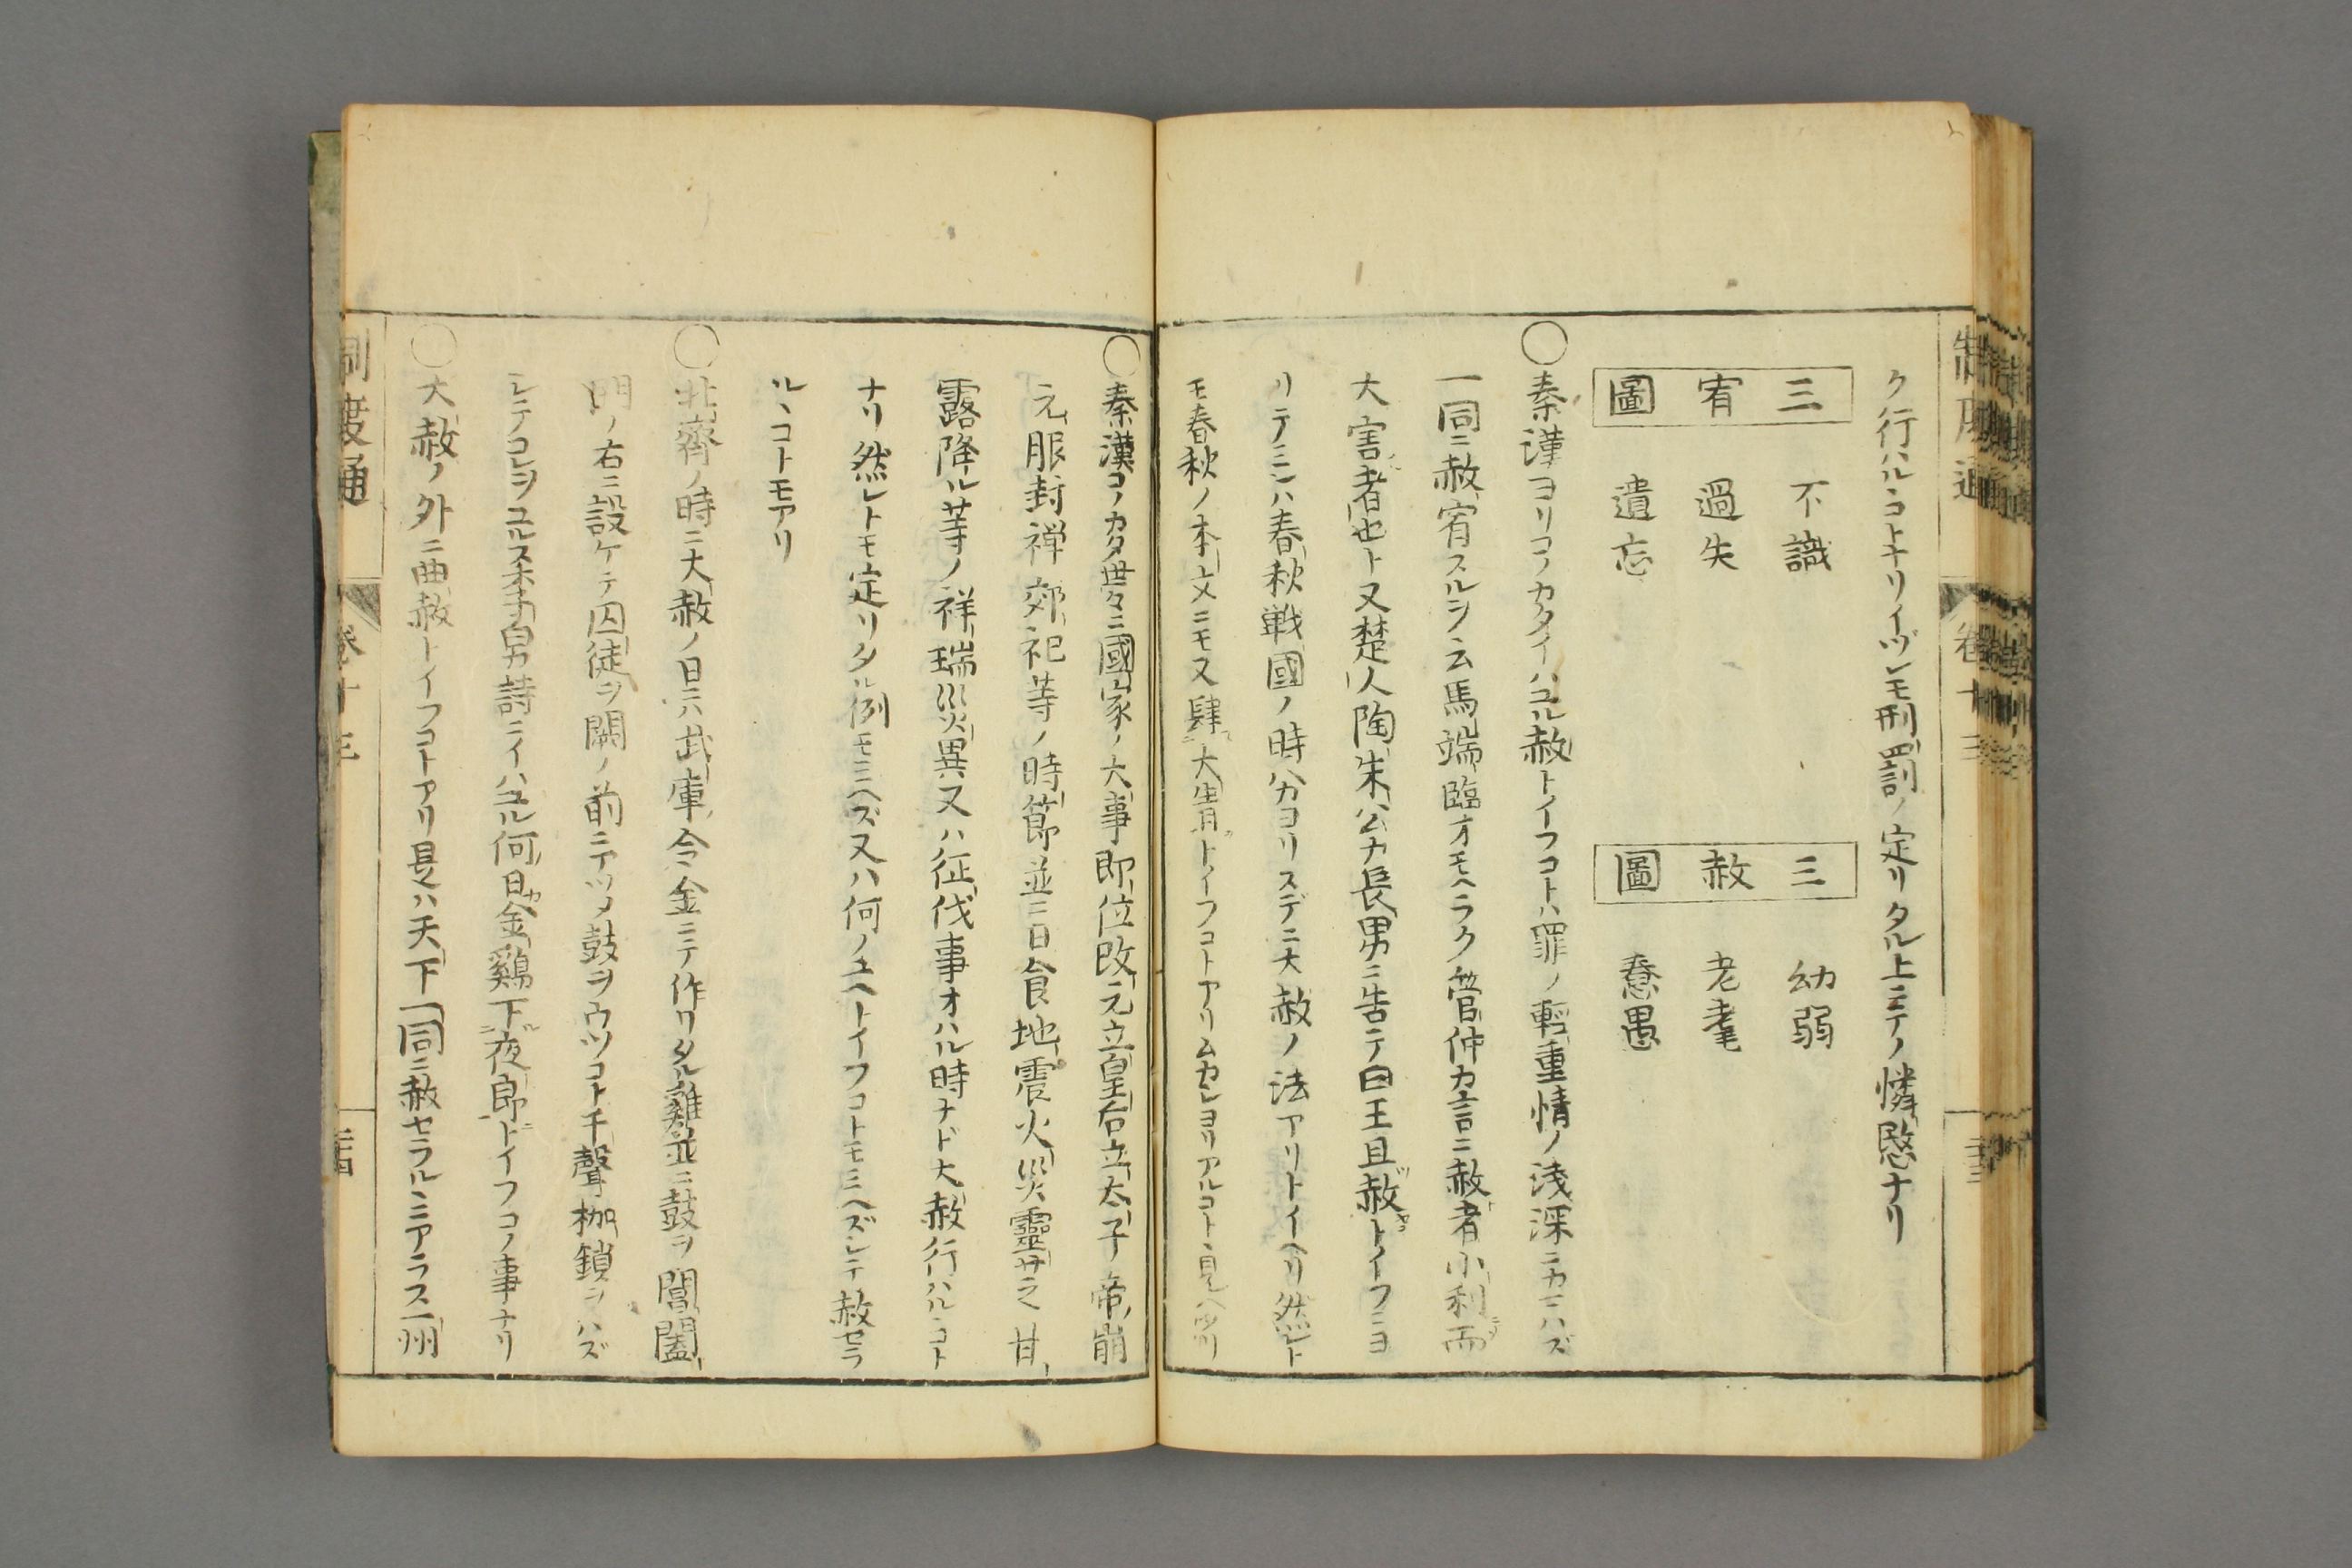 ク行ハルヽコトナリイヅレモ刑罰ノ定リタル上ニテノ憐愍ナリ
三宥圖
不識
過失
遺忘
三赦圖
幼弱
老耄
憃愚
○秦漢ヨリコノカタイハユル赦トイフコトハ罪ノ輕重情ノ浅深ニカヽハズ
一同ニ赦宥スルヲ云馬端臨オモヘラク管仲カ言ニ赦者小利而
大害者也ト又楚人陶朱公カ長男ニ告テ曰王且赦トイフニヨ
リテミレハ春秋戦國ノ時分ヨリスデニ大赦ノ法アリトイヘリ然レト
モ春秋ノ本文ニモ又肆大眚トイフコトアリムカシヨリアルコトヽ見ヘタリ
○秦漢コノカタ世々ニ國家ノ大事即位改元立皇后立太子帝崩
元服封禅郊祀等ノ時節並ニ日食地震火災靈芝甘
露降ル等ノ祥瑞災異又ハ征伐事オハル時ナド大赦行ハルヽコト
ナリ然レトモ定リタル例モミヘズ又ハ何ノユヘトイフコトモミヘズシテ赦セラ
ルヽコトモアリ
○北齊ノ時ニ大赦ノ日ニハ武庫令金ニテ作リタル雞並ニ鼓ヲ閶闔
門ノ右ニ設ケテ囚徒ヲ闕ノ前ニアツメ鼓ヲウツコト千聲枷鎖ヲハズ
シテコレヲユルス李白詩ニイハユル何日金鷄下夜郎トイフコノ事ナリ
○大赦ノ外ニ曲赦トイフコトアリ是ハ天下一同ニ赦セラルニアラス一州
制度通
巻十三